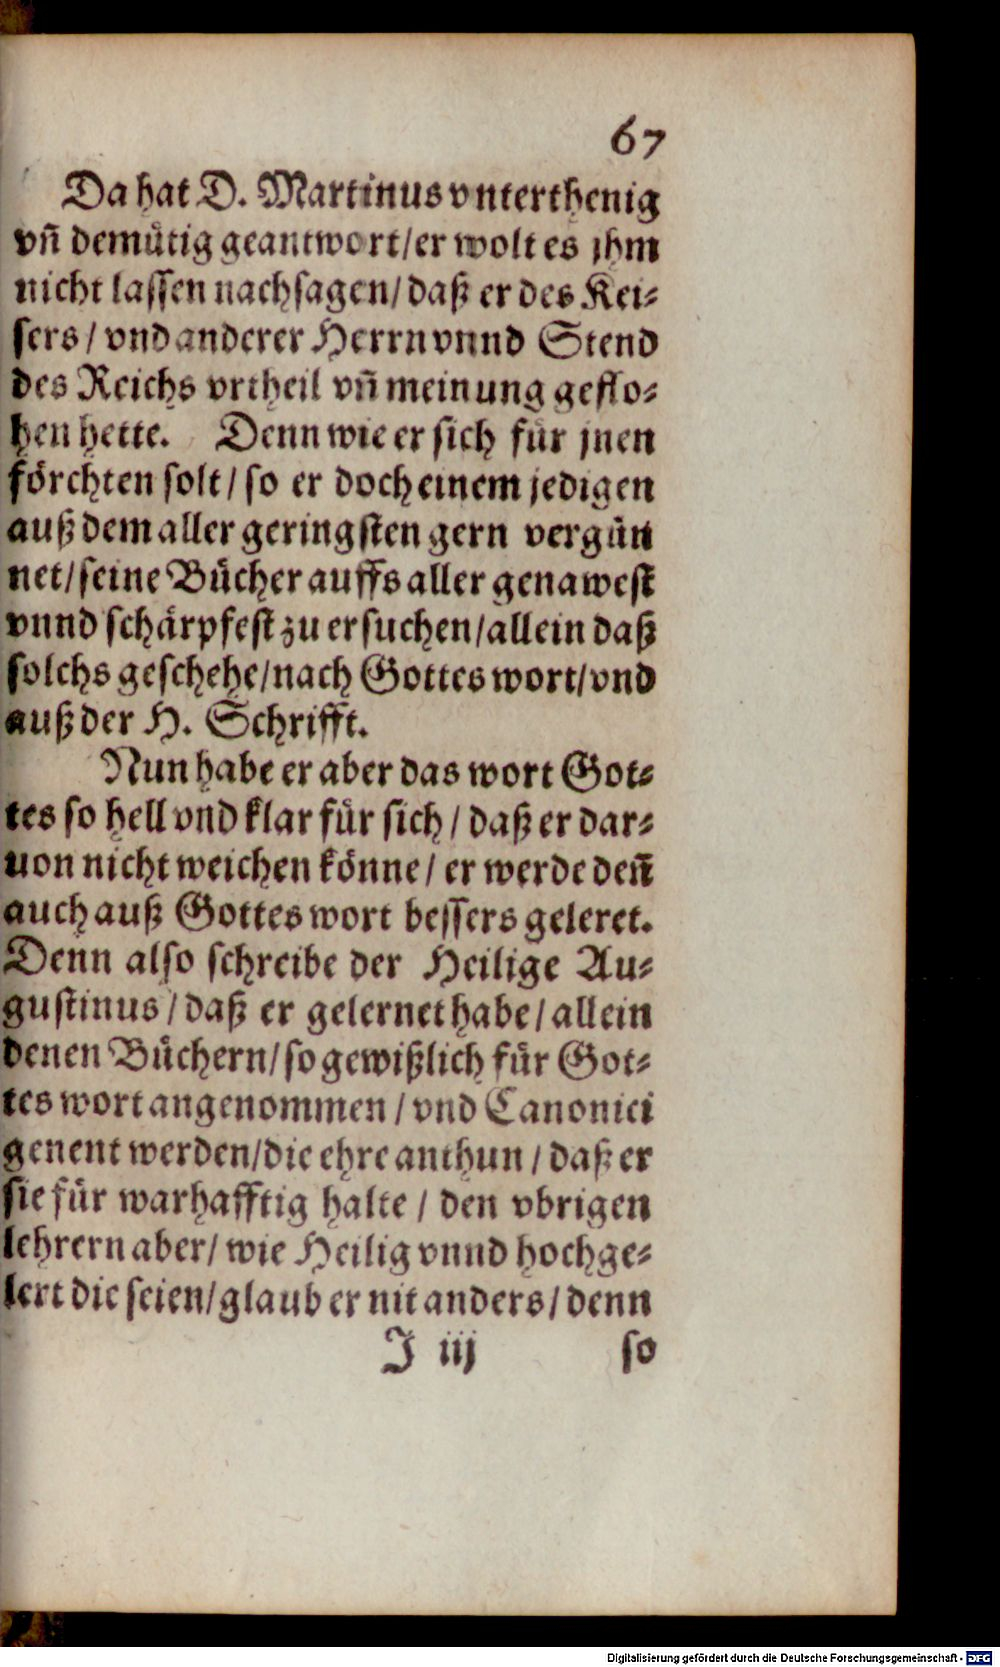 67
Da hat D. Martinus vnterthenig
vñ demütig geantwort/ er wolt es jhm
nicht lassen nachsagen/ daß er des Kei⸗
sers/ vnd anderer Herrn vnnd Stend
des Reichs vrtheil vñ meinung geflo⸗
hen hette. Denn wie er sich für jnen
förchten solt/ so er doch einem jedigen
auß dem aller geringsten gern vergün
net/ seine Bücher auffs aller genawest
vnnd schärpfest zu ersuchen/ allein daß
solchs geschehe/ nach Gottes wort/ vnd
auß der H. Schrifft.
Nun habe er aber das wort Got⸗
tes so hell vnd klar für sich/ daß er dar⸗
uon nicht weichen könne/ er werde deñ
auch auß Gottes wort bessers geleret.
Denn also schreibe der Heilige Au⸗
gustinus/ daß er gelernet habe/ allein
denen Büchern/ so gewißlich für Got⸗
tes wort angenommen/ vnd Canonici
genent werden/ die ehre anthun/ daß er
sie für warhafftig halte/ den vbrigen
lehrern aber/ wie Heilig vnnd hochge⸗
lert die seien/ glaub er nit anders/ denn
J iij so
Digitalisierung gefördert durch die Deutsche Forschungsgemeinschaft - DFG